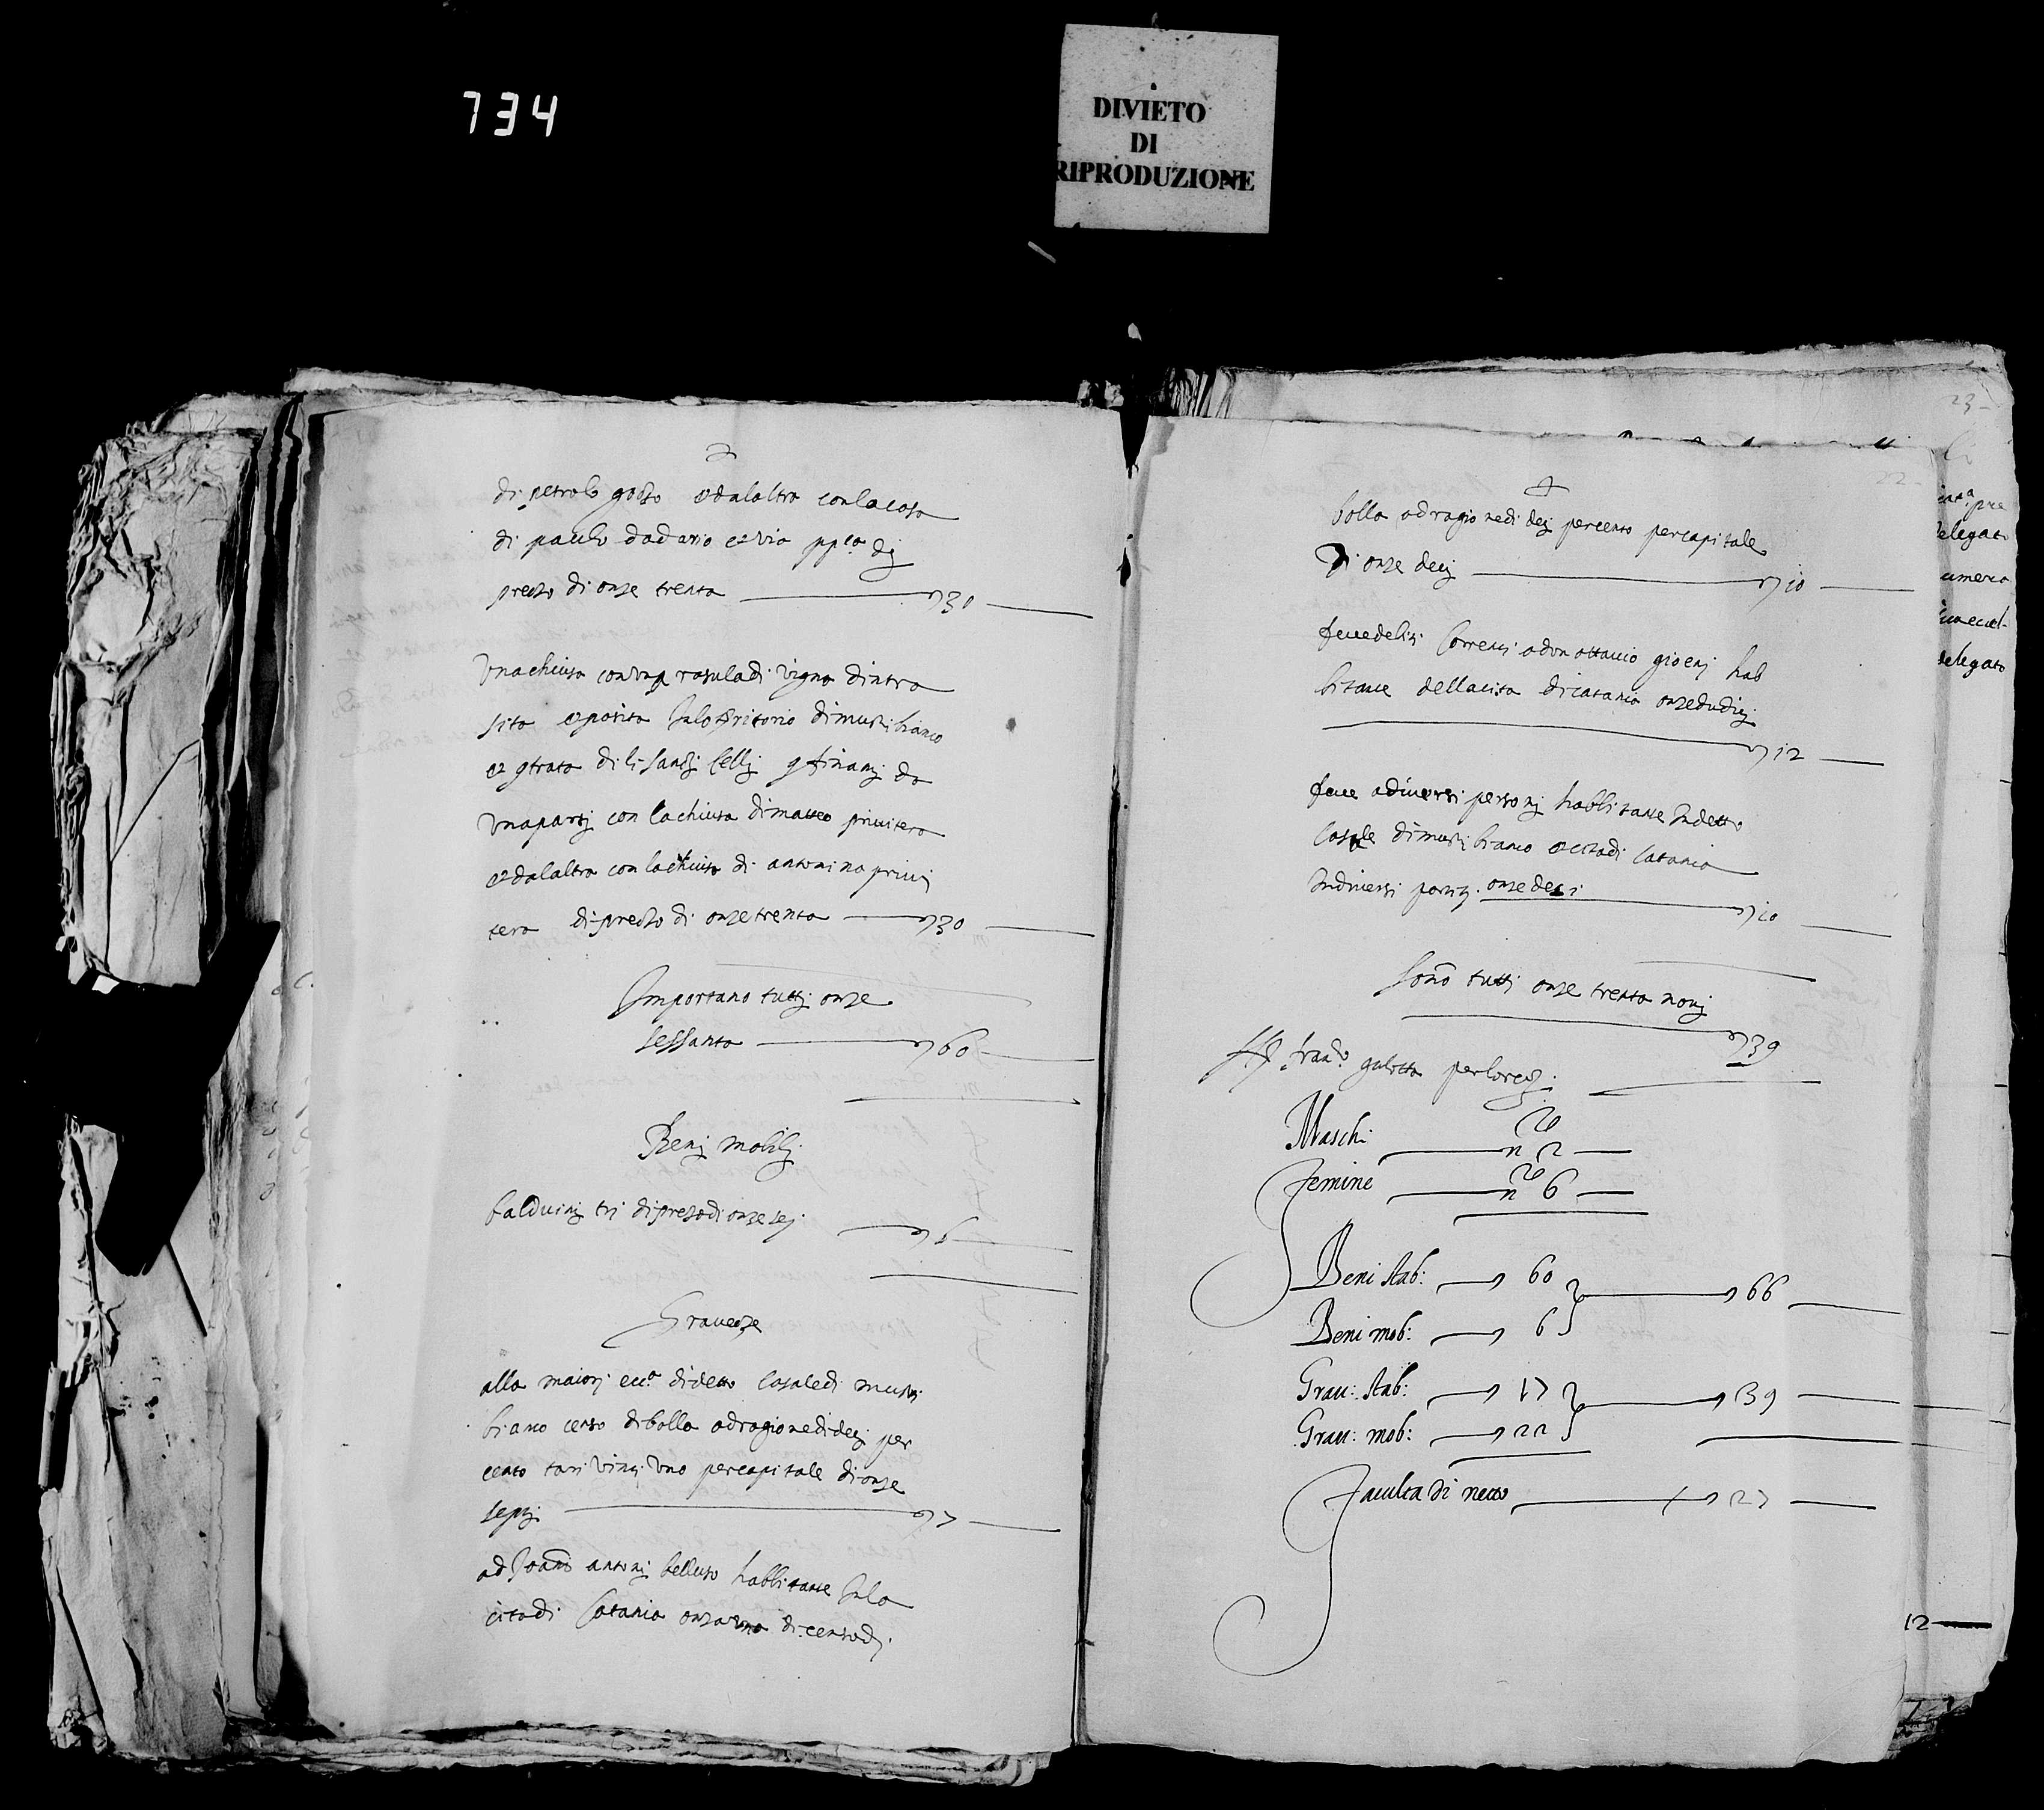 734
DIVIETO
DI
RIPRODUZIONE
di petrolo gozo et dalaltra con la casa
di paulo dadario et via ppca di
prezo di onze trenta 30
Una chiusa con una rasula di vigna dintra
sita et posita in lo territorio di musti bianco
et contrata di li santi celli confinanti da
una parti con la chiusa di matteo privitera
et dalaltra con la chiusa di antonino privi
tera di prezo di onze trenta 30
Importano tutti onze
sessanta 60
Beni mobili
balduini tri di prezo di onze sej 6
Graveze
alla maiori ecca di detto Casale di musti
bianco censo di bolla ad ragione di deci per
cento tari vinti uno per capitale di onze
septi 7
ad Joanni antoni belluso habbitante in la
cita di Catania onza una di censo di
22
bolla ad ragione di deci per cento per capitale
Di onze deci 10
deve deli Correnti a don ottavio gioeni hab
bitante della cita di catania onze dudici
12
deve a diversi personi habbitante in detto
Casale di musti bianco et cita di Catania
in diversi partiti onze deci
10
Sono tutti onze trenta novi
39
franco galotta
Maschi n 2
Femine n 6
Beni stab: 60
66
Beni mob: 6
Grav: stab: 17
39
Grav: mob: 22
Faculta di netto 27
23
elegato
umera
delegato
12